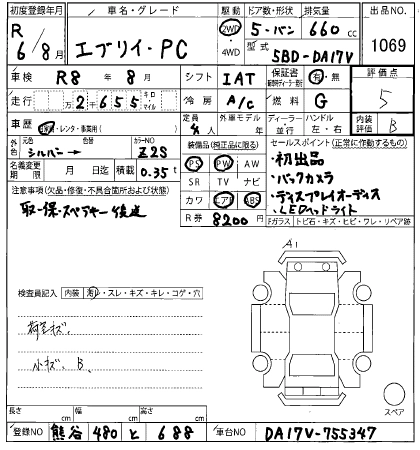 初度登録年月
R 6/8月
車名・グレード
エブリイ・PC
駆動
2WD
・
4WD
ドア数・形状
5・バン
排気量
660 cc
型式
5BD-DA17V
出品NO.
1069
車検
R8年 8月
シフト
IAT
保証書
有・無
評価点
5
走行
万2千655
キロ
マイル
冷房
A/C
燃料
G
車歴
自家用・レンタ・事業用( )
定員
4人
外車モデル
年
ディーラー
並行
ハンドル
左・右
内装
評価
B
外色
元色
シルバー→
色替
カラーNO
Z2S
名義変更期限
月 日迄
積載
0.35t
装備品(純正品に限る)
PS PW AW
SR TV ナビ
カワ エアB ABS
R券
8200円
セールスポイント(正常に作動するもの)
・初出品
・バックカメラ
・ディスプレイオーディオ
・LEDヘッドライト
Fガラス トビ石・キズ・ヒビ・ワレ・リペア跡
注意事項(欠品・修復・不具合箇所および状態)
取・保・スペアキー後送
検査員記入
内装
・スレ・キズ・キレ・コゲ・穴
荷室キズ
小キズ、B
A1
スペア
長さ cm
幅 cm
高さ cm
登録NO
熊谷 480 と 688
車台NO
DA17V-755347